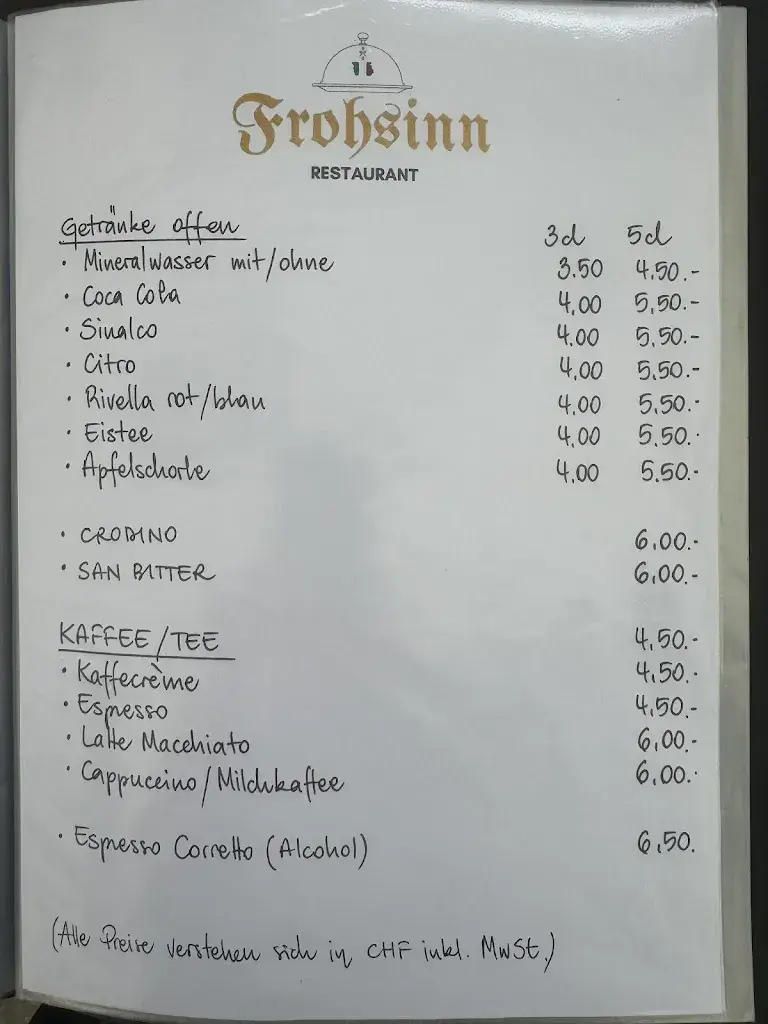 Frohsinn
RESTAURANT
Getränke offen 3d 5d
· Mineralwasser mit/ohne 3.50 4.50.-
· Coca Cola 4,00 5,50.-
· Sinalco 4.00 5,50.-
· Citro 4,00 5.50.-
· Rivella rot/blau 4,00 5,50.-
· Eistee 4,00 5,50.-
· Apfelschorle 4,00 5.50.-
· CRODINO 6,00.-
· SAN BITTER 6,00.-
KAFFEE/TEE 4,50.-
· Kaffecrème 4,50.-
· Espresso 4,50.-
· Latte Macchiato 6,00.-
· Cappuccino/Milchkaffee 6,00.-
· Espresso Corretto (Alcohol) 6,50.
(Alle Preise verstehen sich in CHF inkl. MwSt.)